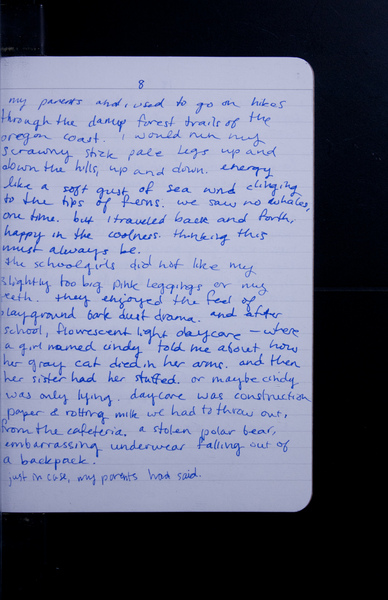 8
my parents and i used to go on hikes
through the damp forest trails of the
oregon coast. i would run my
scrawny stick pale legs up and
down the hills, up and down. energy
like a soft gust of sea wind clinging
to the tips of ferns. we saw no whales,
one time. but i traveled back and forth,
happy in the coolness. thinking this
must always be.
the schoolgirls did not like my
slightly too big pink leggings or my
teeth. they enjoyed the feel of
playground bark dust drama. and after
school, flourescent light daycare – where
a girl named cindy told me about how
her gray cat died in her arms. and then
her sister had her stuffed. or maybe cindy
was only lying. daycare was construction
paper & rotting milk we had to throw out,
from the cafeteria. a stolen polar bear,
embarrassing underwear falling out of
a backpack.
just in case, my parents had said.